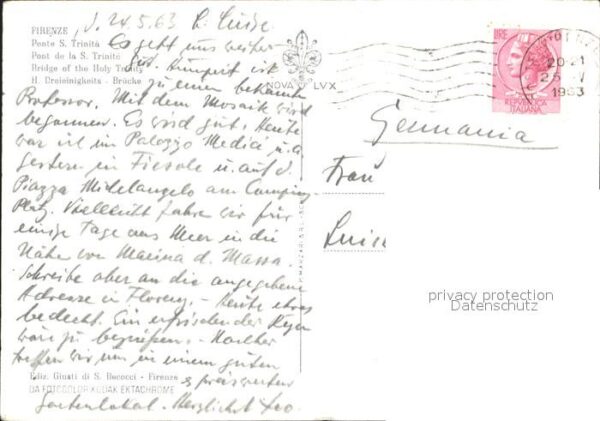 FIRENZE, d. 24.5.63 L. Luise
Ponte S. Trinità
Es geht uns weiter
Pont de la S. Trinité
gut. Rumpert ist
Bridge of the Holy Trinity
H. Dreieinigkeits - Brücke
zu einem bekannte
Professor. Mit dem Mosaik wird
begonnen. Es wird gut. Heute
war ich im Palazzo Medici u. a.
gestern in Fiesole u. auf d.
Piazza Michelangelo am Camping
Platz. Vielleicht fahre wir für
einige Tage ans Meer in die
Nähe von Marina d. Massa.
Schreibe aber an die angegebene
Adresse in Florenz. - Heute etwas
bedeckt. Ein erfrischender Regen
wäre zu begrüßen. - Nachher
treffen wir uns in einem guten
Ediz. Giusti di S. Becocci - Firenze
& preiswerten
DA FOTOCOLOR KODAK EKTACHROME
Gartenlokal. Herzlichst Leo
NOVA LVX
LIRE
REPVBBLICA
ITALIANA
20-21
1963
Germania
Frau
Luise
privacy protection
Datenschutz